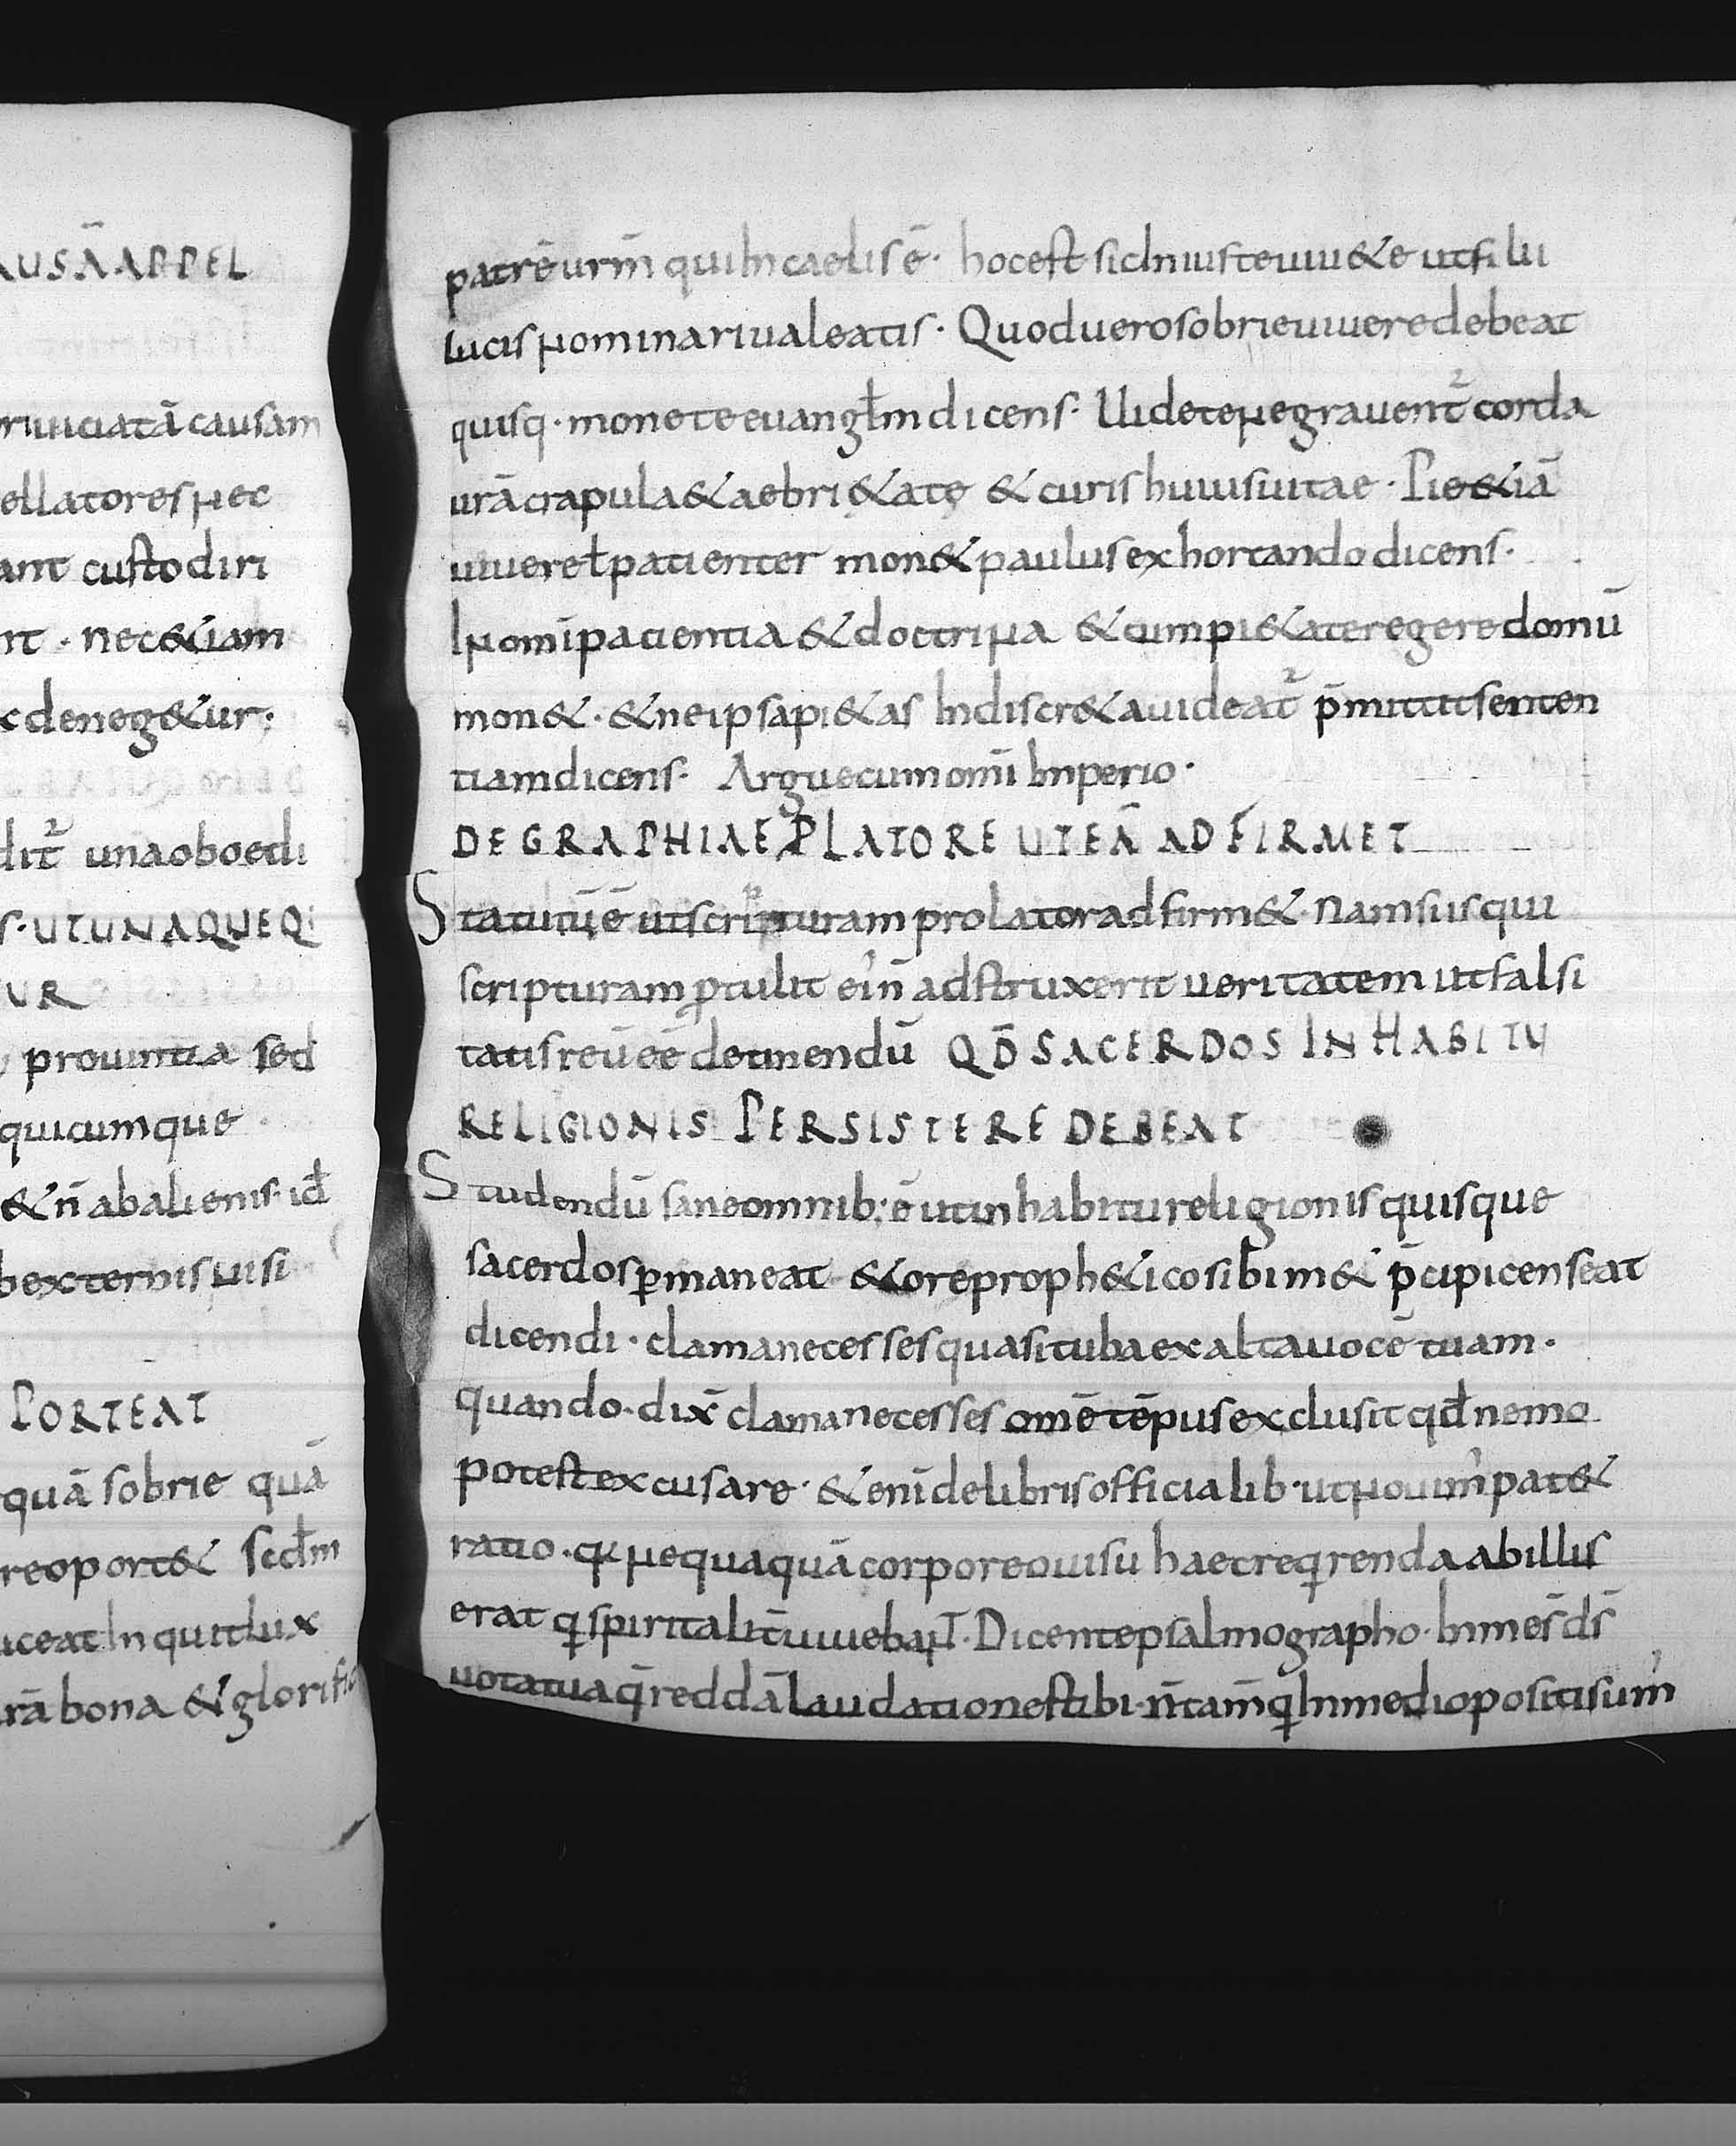 AUSĀ APPEL
riuiciatā causam
ellatores nec
ant custodiri
nt · nec &iam
denegetur·
dit̄ una oboedi
S· UT UNAQUEQ:
UR
prouintia sed
quicumque
& n̄ ab alienis· id̄
b externis nisi
PORTEAT
quā sobrie quā
re oport& scd̄m
uceat Inquit lux
rā bona & glorific
patrē urm̄ qui In caelis ē· hoc est sic In iuste uiu&e ut filii
lucis nominari ualeatis· Quod uero sobrie uiuere debeat
quisq· monete euangłm dicens· Uidete ne grauent̄ corda
urā crapula & aebri&atę & curis huius uitae· Pie &iā
uiuere ł patienter mon& paulus exhortando dicens·
In omī pacientia & doctrina & cum pi&ate regere domū
mon&· & ne ipsa pi&as Indiscr&a uideat̄ p̄mittit senten
tiam dicens· Argue cum omī Inperio·
DE GRAPHIAE PLATORE UT EĀ ADFIRMET
Statutū ē ut scripturam prolator adfirm& Nam si is qui
scripturam ꝓtulit ei n̄ adstruxerit ueritatem ut falsi
tatis reū eē detinendū QD̄ SACERDOS IN HABITU
RELIGIONIS PERSISTERE DEBEAT
Studendū sane omnib; ē ut in habitu religionis quisque
sacerdos ꝑmaneat & ore proph&ico sibim& p̄cipi censeat
dicendi· clama ne cesses quasi tuba exalta uocē tuam·
quando· dix̄ clama ne cesses omē tēpus exclusit qd̄ nemo
potest excusare· & enī de libris officialib· ut nouim' pat&
ratio· qr nequaquā corporeo uisu haec reqrenda ab illis
erat q spiritalit̄ uiuebant· Dicente psalmographo· In me s̄ ds̄
uota tua q̄ reddā laudationes tibi· n̄ tam̄ q In medio positi sum'